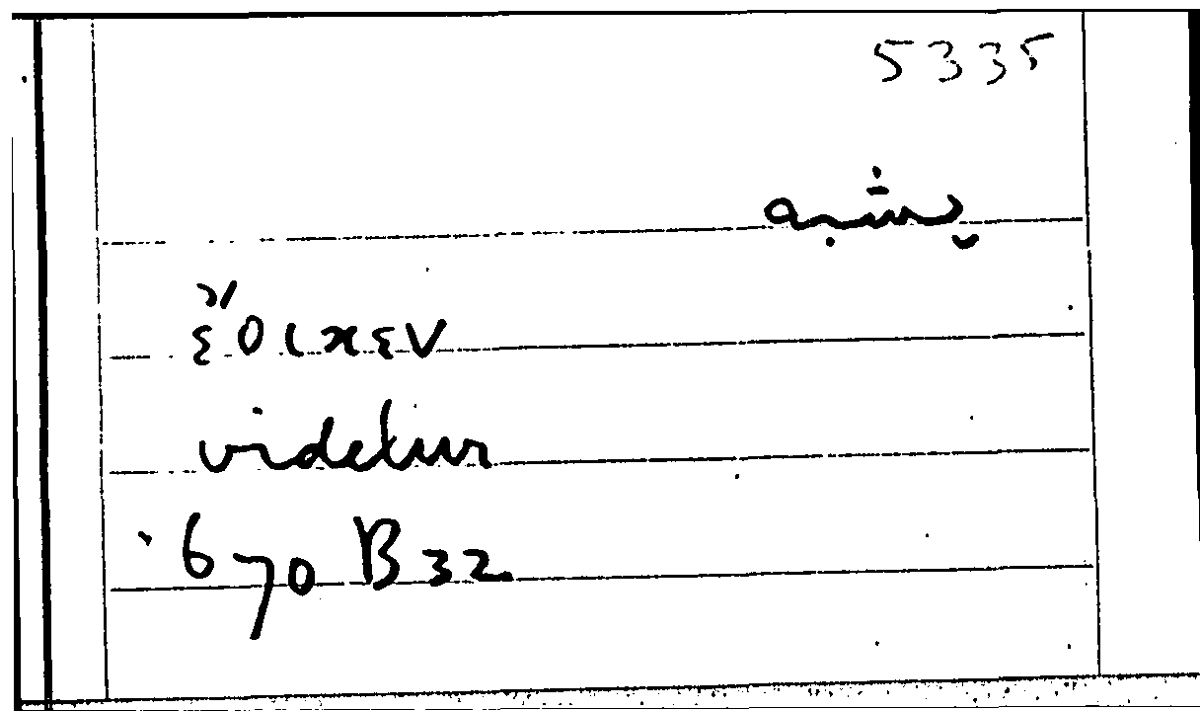 5335
يشبه
ἔοικεν
videtur
670 B32